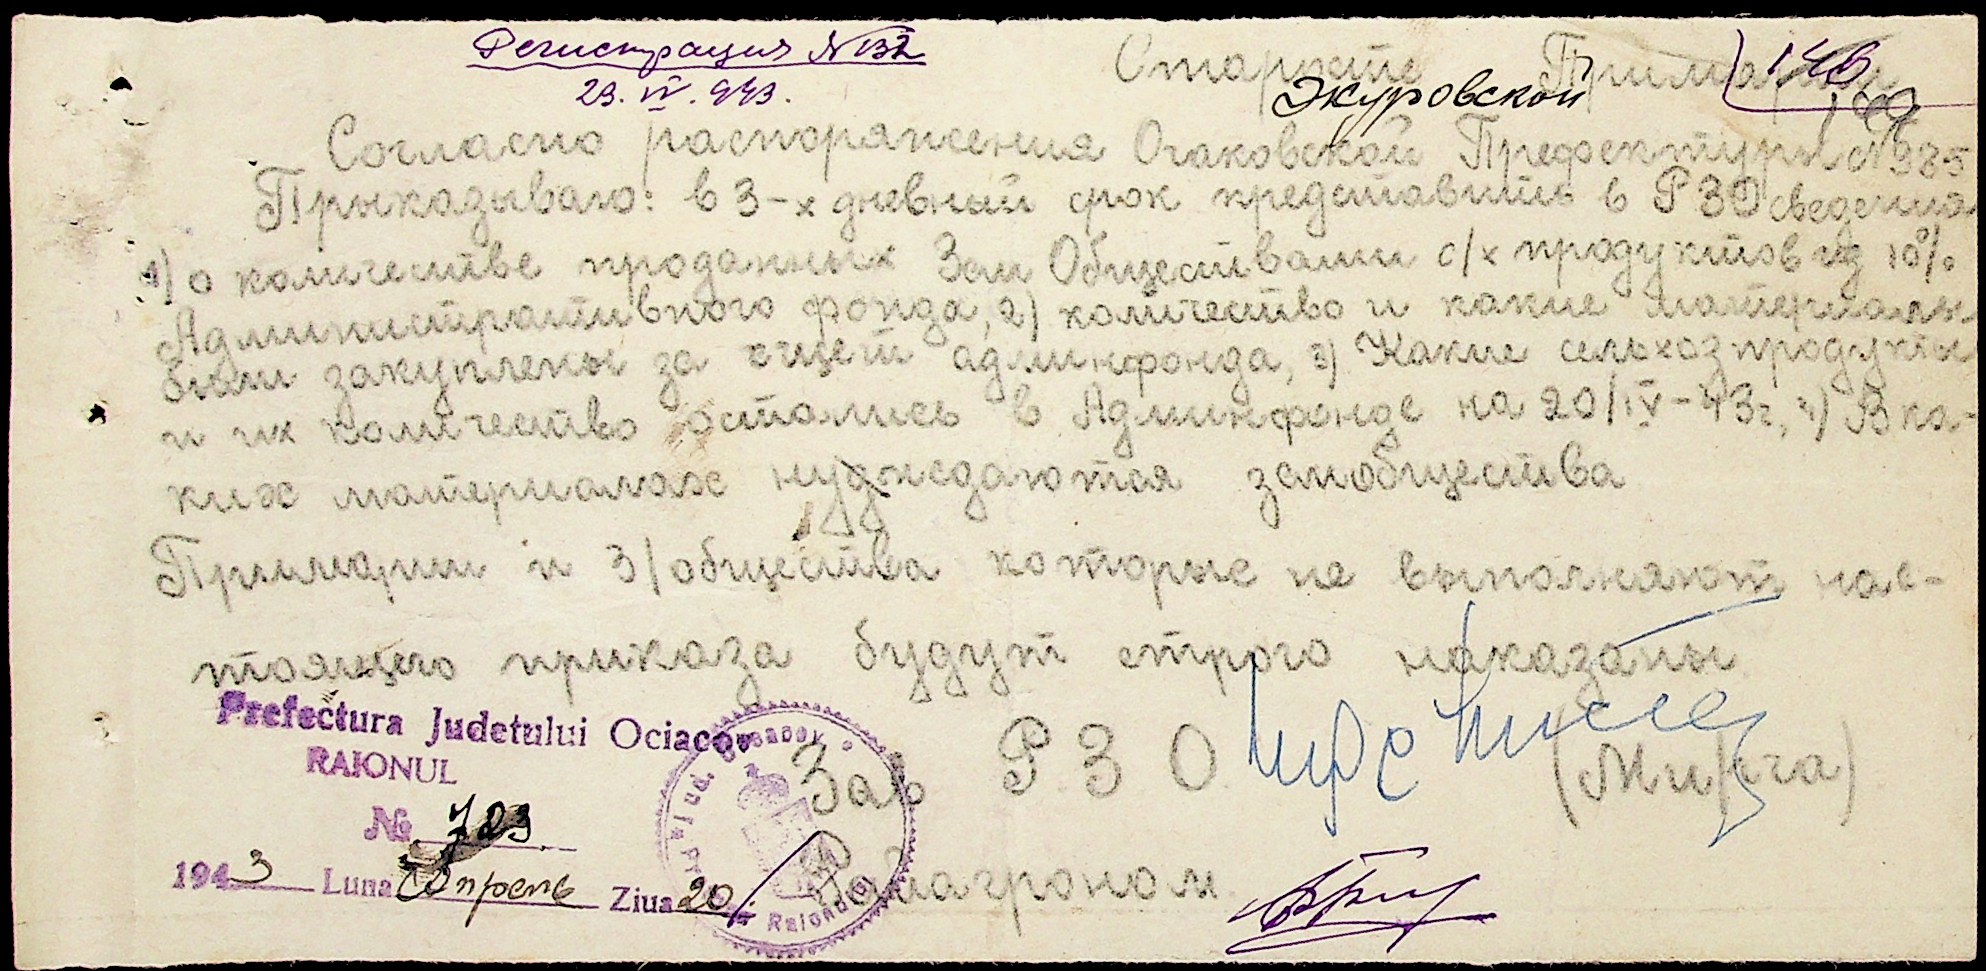 Регистрация N 132
29.IV.943.
Старосте Примарии
146
Экуровской
Согласно распоряжения Очаковской Префектуры N 985
Прыказываю: в 3-х дневный срок представить в РЗО сведения
1) о количестве проданных Зем Обществами с/х продуктов из 10%
Административного фонда, 2) количество и какие материалы
были закуплены за счет админфонда, 3) Какие сельхозпродукты
и их количество остались в Админфонде на 20/IV-43г, 4) В ка-
ких материалах нуждаются земобщества
Примарии и З/общества которые не выполняют нас-
тоящего приказа будут строго наказаны
Prefectura Judetului Ociacov
RAIONUL
Зав РЗО (Мирга)
№ 723
1943 Luna Апрель Ziua 20/
Райагроном